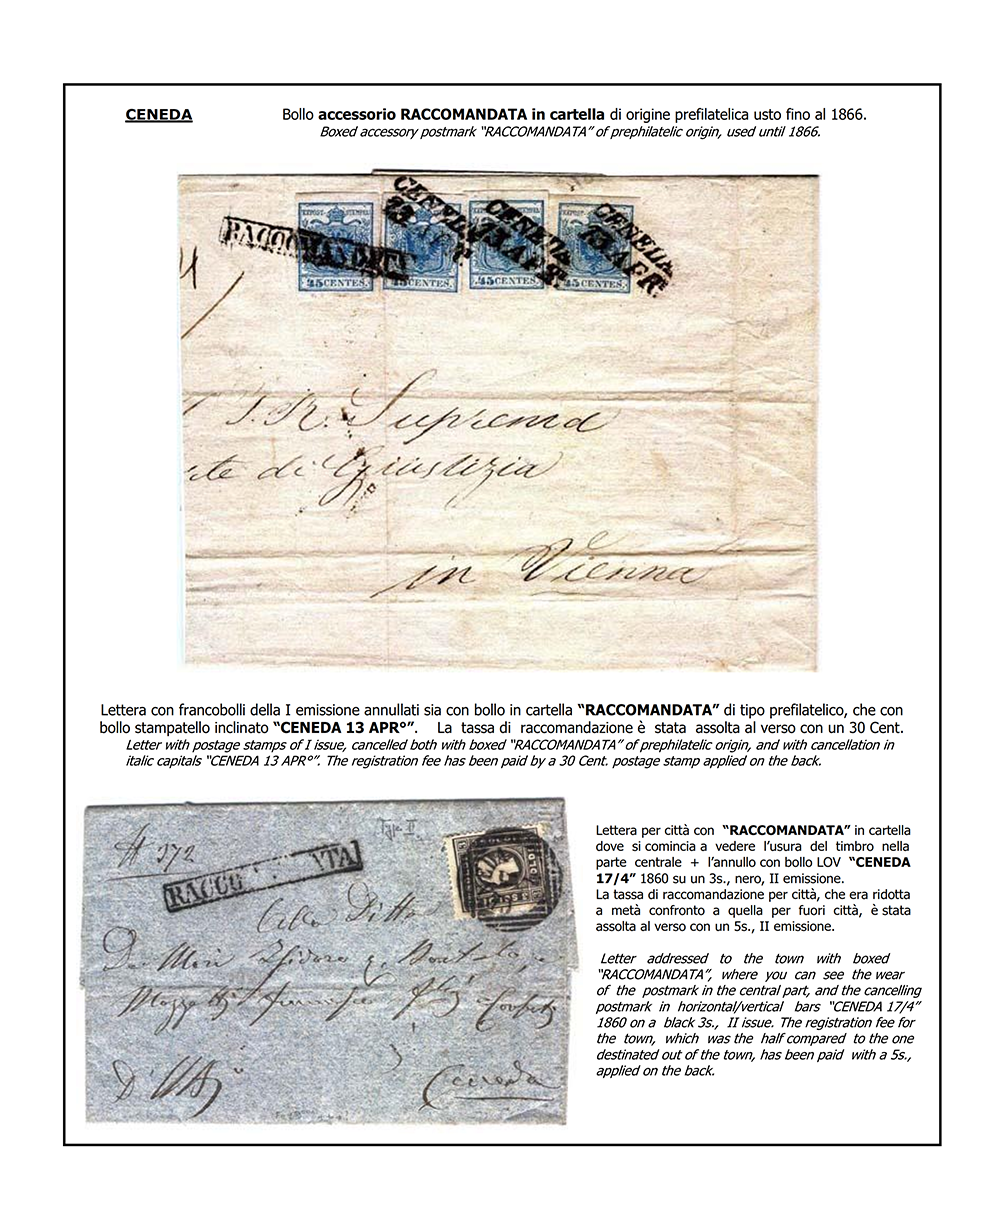 CENEDA
Bollo accessorio RACCOMANDATA in cartella di origine prefilatelica usto fino al 1866.
Boxed accessory postmark “RACCOMANDATA” of prephilatelic origin, used until 1866.
RACCOMANDATA
CENEDA
CENEDA
CENEDA
13 APR.
13 APR.
45 CENTES.
45 CENTES.
45 CENTES.
45 CENTES.
I. R. Suprema
di Giustizia
in Vienna
Lettera con francobolli della I emissione annullati sia con bollo in cartella “RACCOMANDATA” di tipo prefilatelico, che con
bollo stampatello inclinato “CENEDA 13 APR°”. La tassa di raccomandazione è stata assolta al verso con un 30 Cent.
Letter with postage stamps of I issue, cancelled both with boxed “RACCOMANDATA” of prephilatelic origin, and with cancellation in
italic capitals “CENEDA 13 APR°”. The registration fee has been paid by a 30 Cent. postage stamp applied on the back.
Type II
372
RACCO
ATA
Ditta
Ceneda
Lettera per città con “RACCOMANDATA” in cartella
dove si comincia a vedere l’usura del timbro nella
parte centrale + l’annullo con bollo LOV “CENEDA
17/4” 1860 su un 3s., nero, II emissione.
La tassa di raccomandazione per città, che era ridotta
a metà confronto a quella per fuori città, è stata
assolta al verso con un 5s., II emissione.
Letter addressed to the town with boxed
“RACCOMANDATA”, where you can see the wear
of the postmark in the central part, and the cancelling
postmark in horizontal/vertical bars “CENEDA 17/4”
1860 on a black 3s., II issue. The registration fee for
the town, which was the half compared to the one
destinated out of the town, has been paid with a 5s.,
applied on the back.